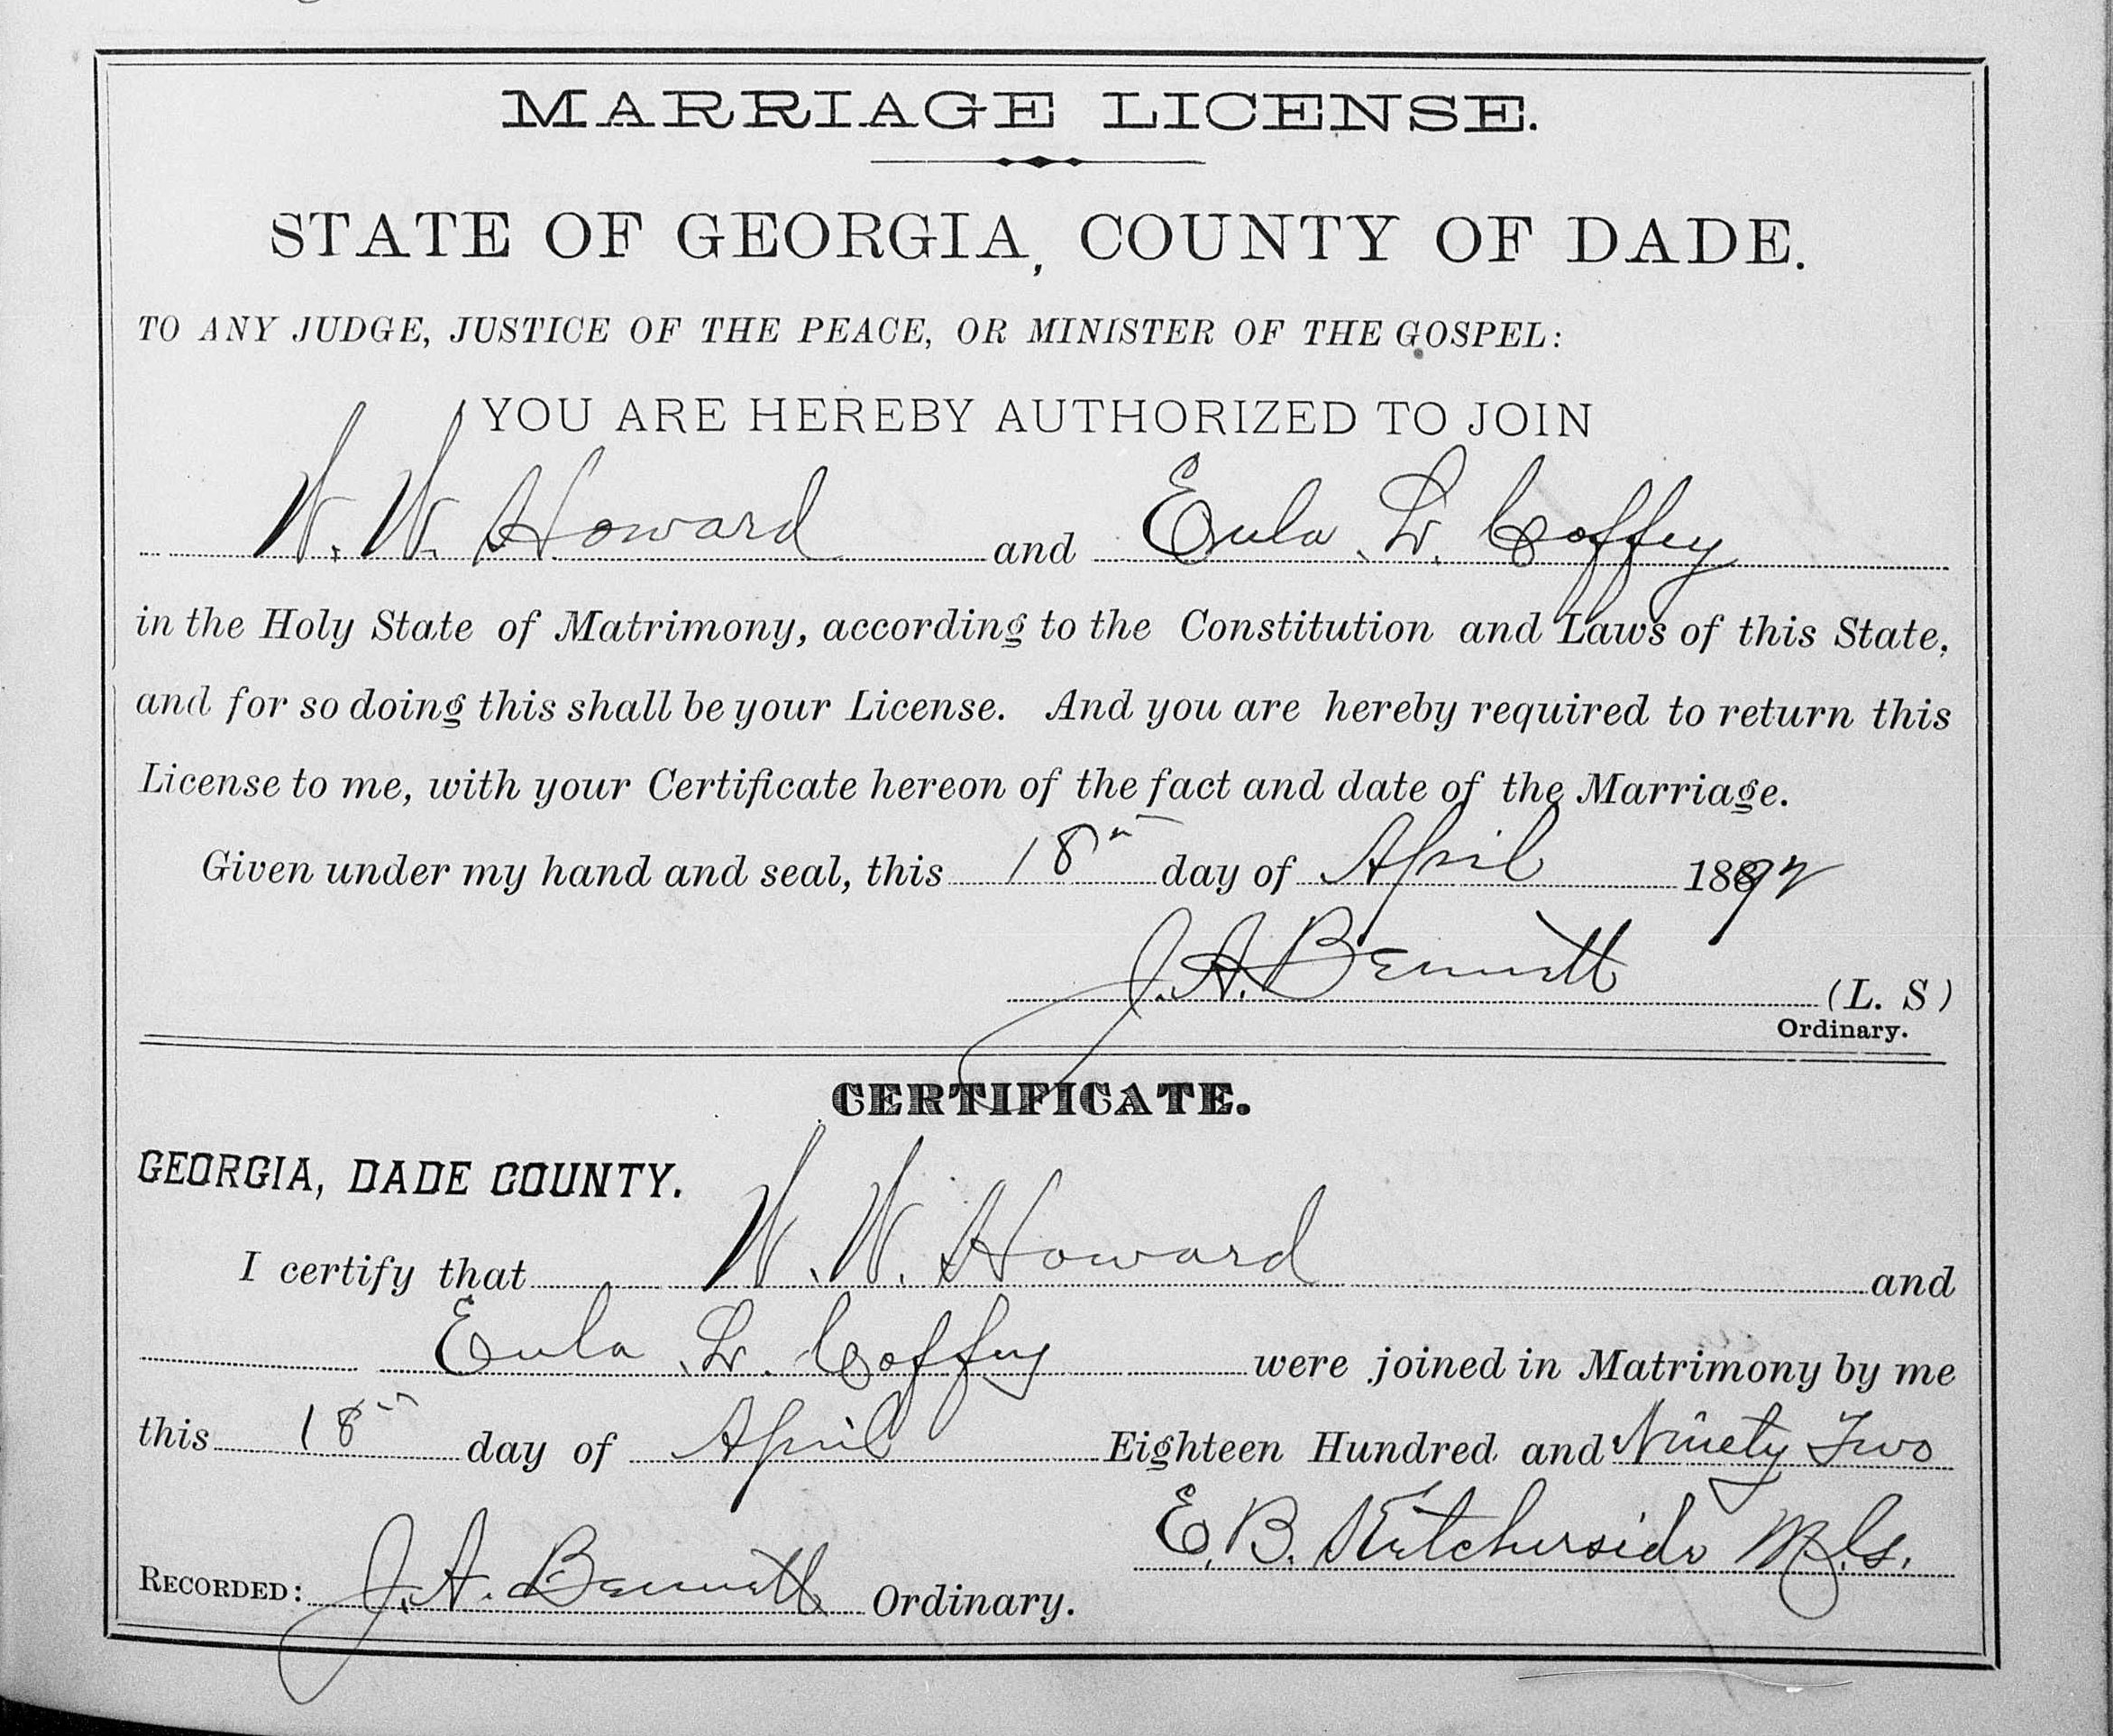 MARRIAGE LICENSE.
STATE OF GEORGIA, COUNTY OF DADE.
TO ANY JUDGE, JUSTICE OF THE PEACE, OR MINISTER OF THE GOSPEL:
YOU ARE HEREBY AUTHORIZED TO JOIN
W. W. Howard and Eula L. Coffey
in the Holy State of Matrimony, according to the Constitution and Laws of this State,
and for so doing this shall be your License. And you are hereby required to return this
License to me, with your Certificate hereon of the fact and date of the Marriage.
Given under my hand and seal, this 18th day of April 1892
J. A. Bennett (L. S)
Ordinary.
CERTIFICATE.
GEORGIA, DADE COUNTY.
I certify that W. W. Howard and
Eula L. Coffey were joined in Matrimony by me
this 18th day of April Eighteen Hundred and Ninety Two
E. B. Ketcherside M.G.
RECORDED: J. A. Bennett Ordinary.